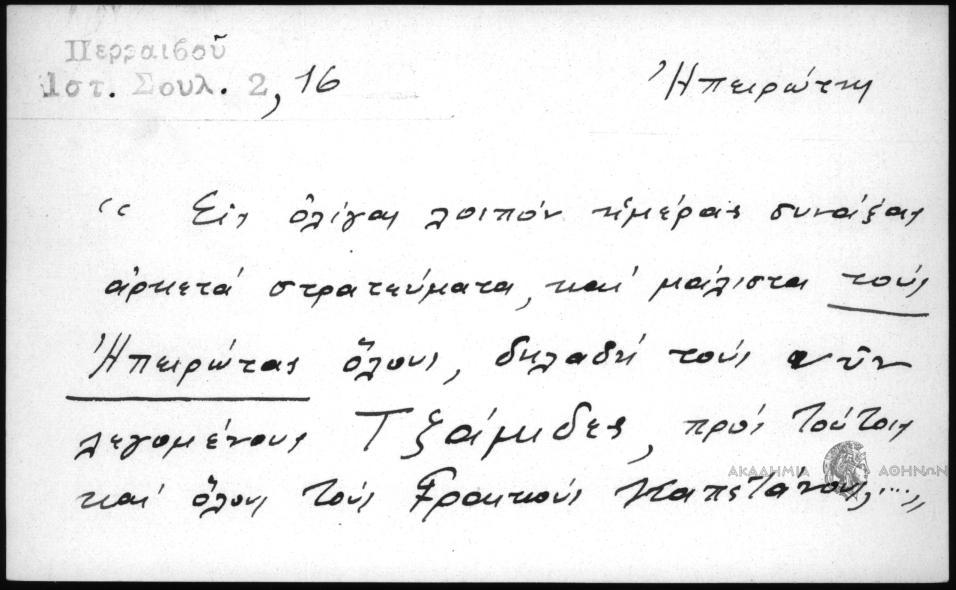 Περραιβοῦ
Ιστ. Σουλ. 2, 16
Ἠπειρώτη
“ Εἰς ὀλίγας λοιπόν ἡμέρας συνάξας
ἀρκετά στρατεύματα, καί μάλιστα τούς
Ἠπειρώτας ὅλους, δηλαδή τούς νῦν
λεγομένους Τζάμιδες, πρός τούτοις
καί ὅλους τούς Γραικούς Καπετάνους,....,,
ΑΚΑΔΗΜΙΑ ΑΘΗΝΩΝ